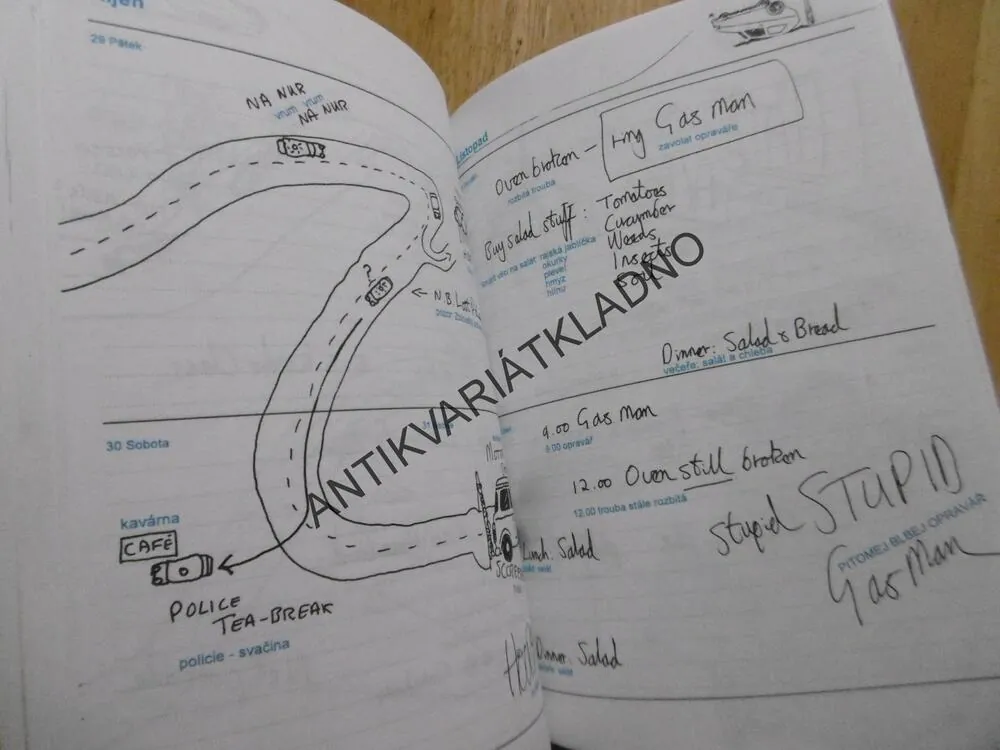 29 Pátek
NA NUR
vrum vrum
NA NUR
N.B.
30 Sobota
kavárna
CAFÉ
POLICE
TEA-BREAK
policie - svačina
Listopad
Oven broken - ring Gas man
rozbitá trouba
zavolat opraváře
Buy salad stuff: Tomatoes
rajská jablíčka
Cucumber
okurky
Weeds
plevel
Insects
hmyz
hlínu
Dinner: Salad & Bread
večeře: salát a chleba
9.00 Gas Man
9.00 opravář
12.00 Oven still broken
12.00 trouba stále rozbitá
stupid STUPID
PITOMEJ BLBEJ OPRAVÁŘ
Gas Man
Lunch: Salad
Dinner: Salad
ANTIKVARIÁTKLADNO